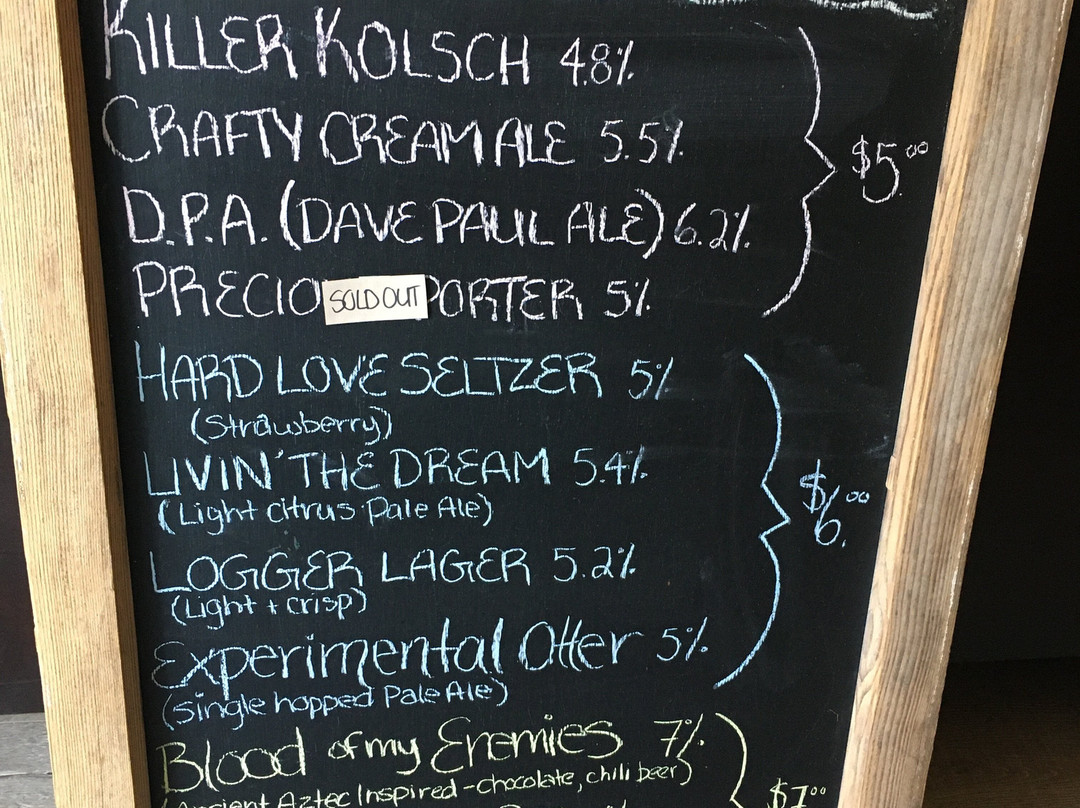 KILLER KOLSCH 4.8%
CRAFTY CREAM ALE 5.5%
$5.00
D.P.A. (DAVE PAUL ALE) 6.2%
PRECIO SOLD OUT PORTER 5%
HARD LOVE SELTZER 5%
(Strawberry)
LIVIN' THE DREAM 5.4%
(Light citrus Pale Ale)
$6.00
LOGGER LAGER 5.2%
(Light + crisp)
Experimental Otter 5%
(Single hopped Pale Ale)
Blood of my Enemies 7%
(Ancient Aztec Inspired - chocolate, chili beer)
$7.00